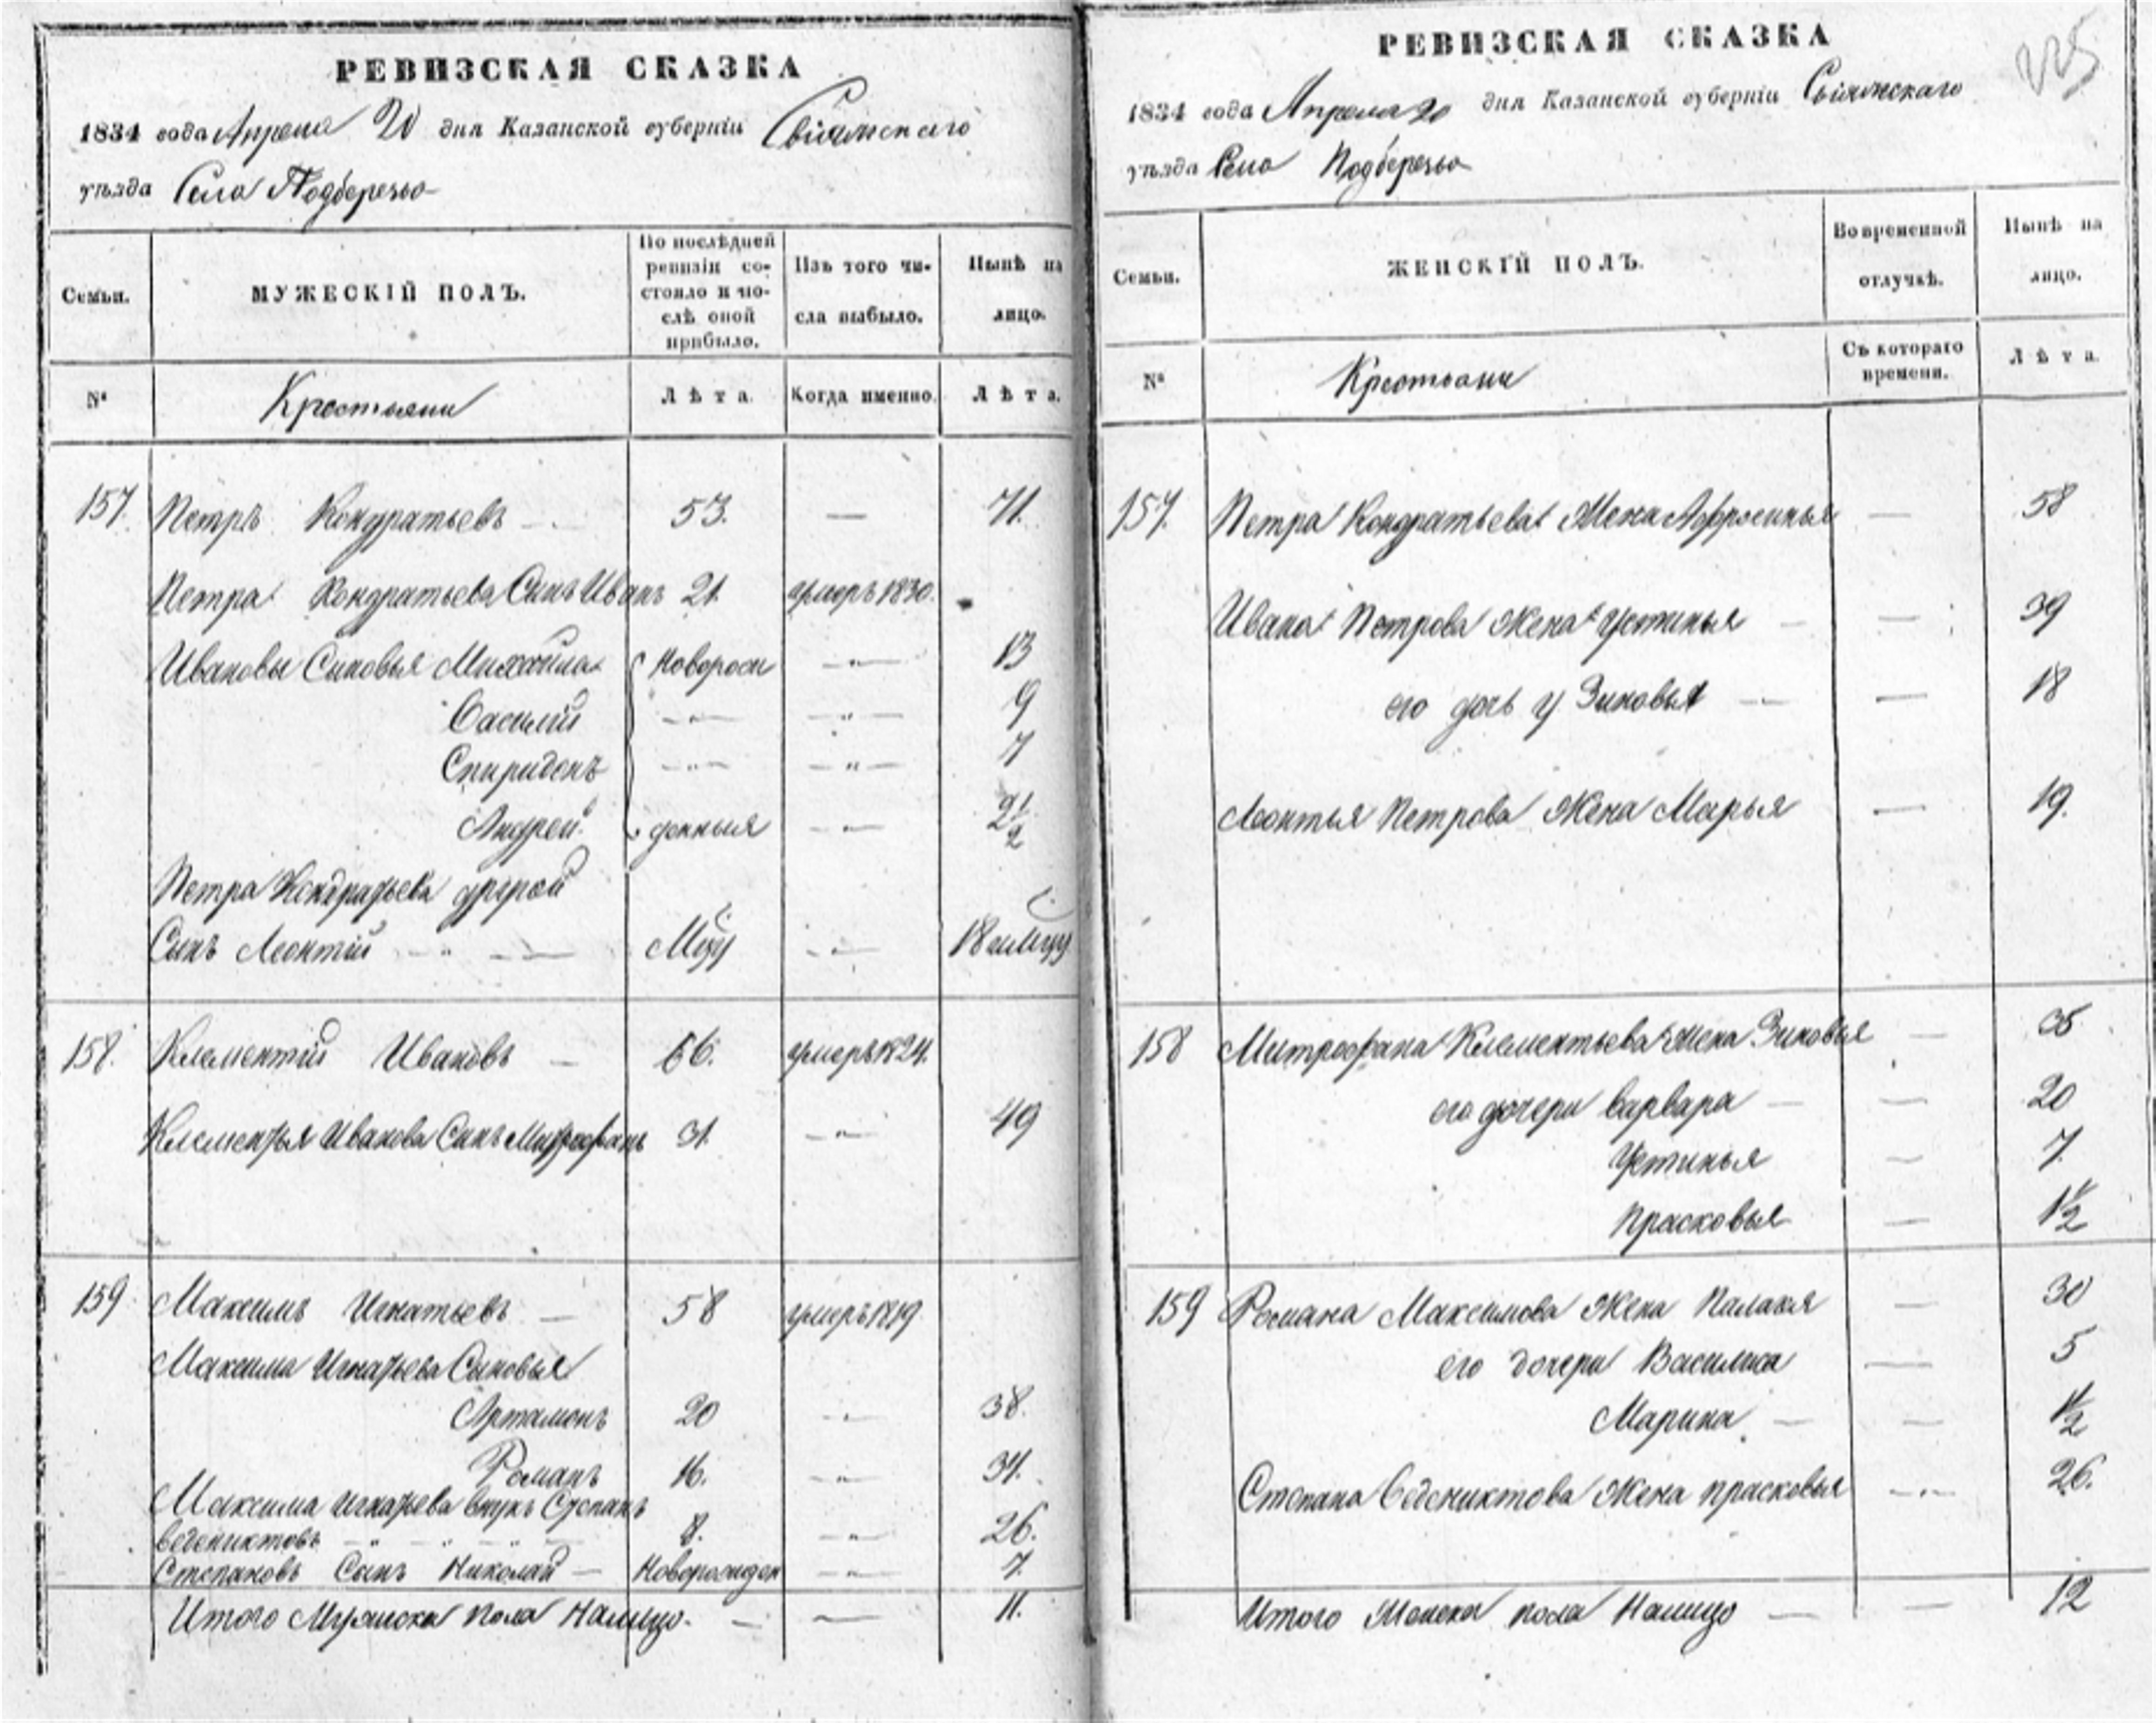 РЕВИЗСКАЯ СКАЗКА
1834 года Апреля 20 дня Казанской губерніи Свіяжскаго
уѣзда Села Подберезьо
Семьи.
МУЖЕСКІЙ ПОЛЪ.
По послѣдней ревизіи со-
стояло и по-
слѣ оной
прибыло.
Изъ того чи-
сла выбыло.
Нынѣ на
лицо.
№
Крестьяни
Лѣта.
Когда именно.
Лѣта.
157. Петръ Кондратьевъ — 53. — 71.
Петра Кондратьева Сынъ Иванъ 21. умеръ 1830.
Ивановы Сыновья Михайла Новорож — 13
Василій — — 9
Спиридонъ — — 7
Андрей денныя — 2 1/2
Петра Кондратьева другой
Сынъ Леонтій — —
158. Клементій Ивановъ — 66. умеръ 1824.
Клементья Иванова Сынъ Митрофанъ 31. — 49
159 Максимъ Игнатьевъ — 58 умеръ 1819.
Максима Игнатьева Сыновья
Артамонъ 20 — 38.
Романъ 16. — 34.
Максима Игнатьева внукъ Степанъ
ведениктовъ 8. — 26.
Степановъ Сынъ Николай — Новорожден — 7.
Итого Мужеска пола Налицо. — — 11.
РЕВИЗСКАЯ СКАЗКА
1834 года Апреля 20 дня Казанской губерніи Свіяжскаго
уѣзда Села Подберезьо
Семьи.
ЖЕНСКІЙ ПОЛЪ.
Во временной
отлучкѣ.
Нынѣ на
лицо.
№
Крестьяни
Съ котораго
времени.
Лѣта.
157. Петра Кондратьева Жена Афросинья — 58
Ивана Петрова Жена Устинья — 39
его дочь у Зиновья — 18
Леонтья Петрова Жена Марья — 19.
158 Митрофана Клементьева Жена Зиновья —
его дочери варвара — 20
Устинья — 7.
Прасковья — 1 1/2
159 Романа Максимова Жена Палагя — 30
его дочери Василиса — 5
Марина — 1 1/2
Степана Ведениктова Жена прасковья — 26.
Итого Женска пола Налицо — 12